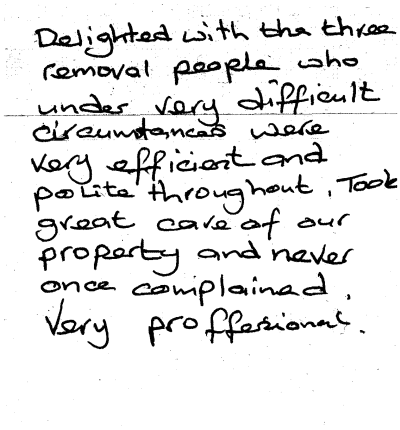 Delighted with the three
removal people who
under very difficult
circumstances were
very efficient and
polite throughout. Took
great care of our
property and never
once complained.
Very proffesional.